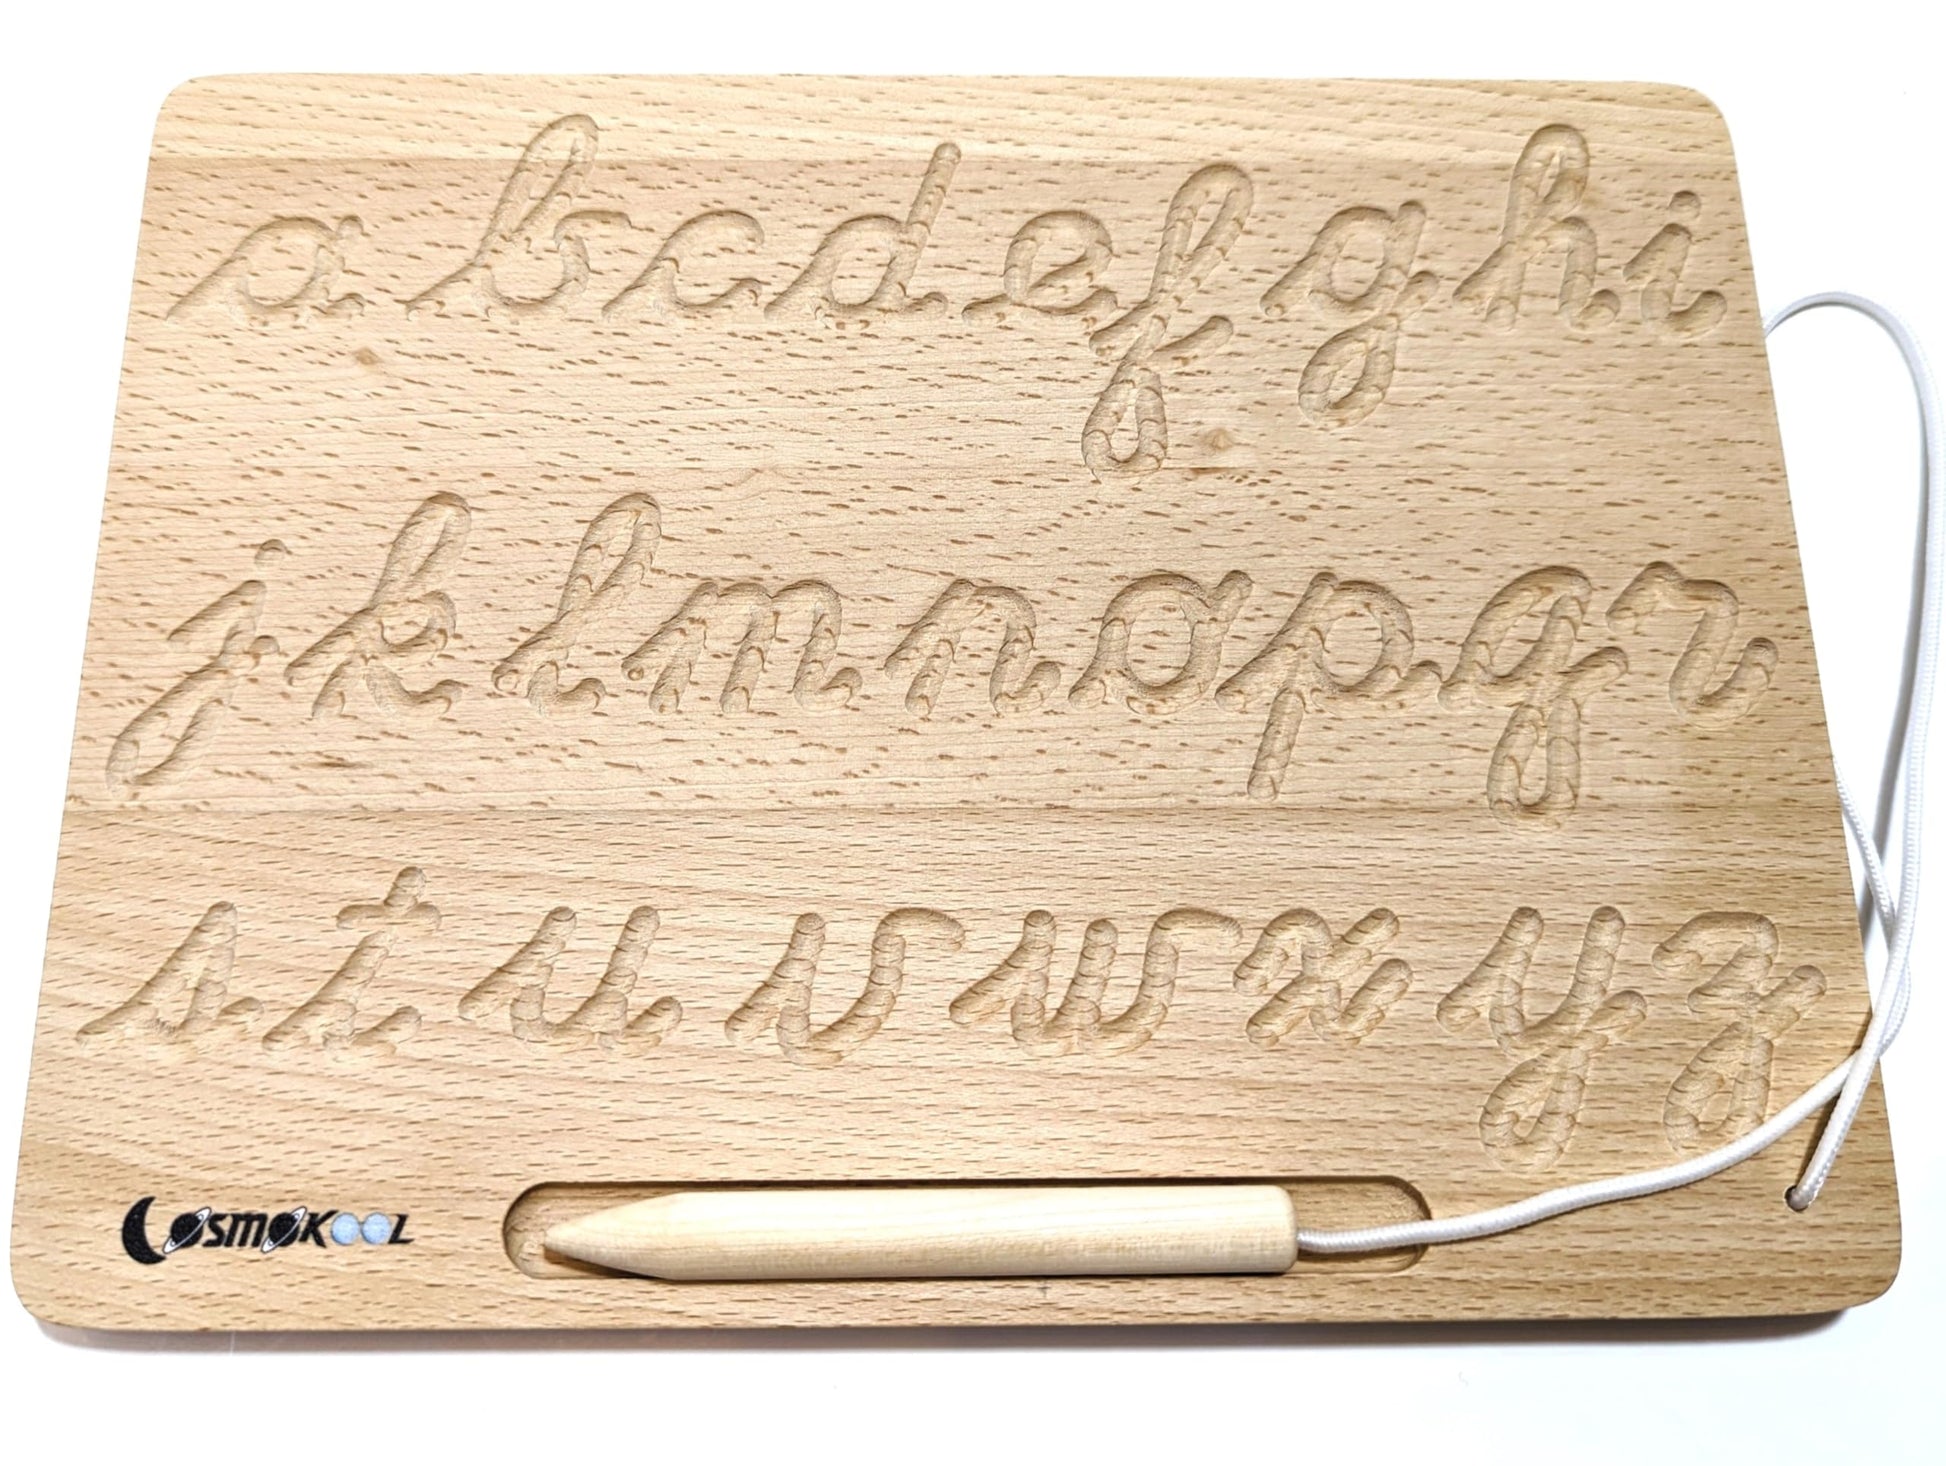 a b c d e f g h i
j k l m n o p q r
s t u v w x y z
COSMOKOOL